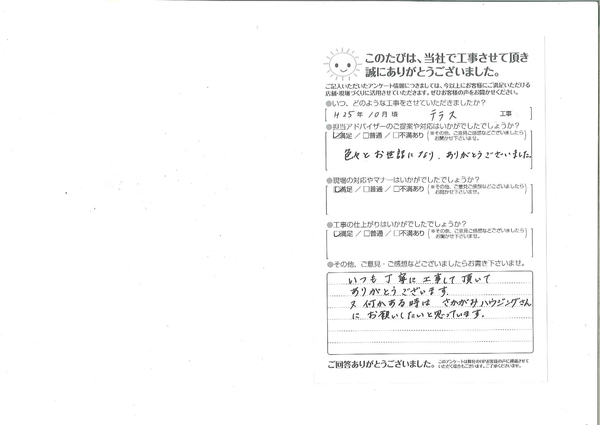 このたびは、当社で工事させて頂き
誠にありがとうございました。
ご記入いただいたアンケート情報につきましては、今以上にお客様にご満足いただける
店舗・現場づくりに活用させていただきます。ぜひお客様の声をお聞かせください。
●いつ、どのような工事をさせていただきましたか？
H25年 10月頃 テラス 工事
●担当アドバイザーのご提案や対応はいかがでしたでしょうか？
☑満足 / □普通 / □不満あり (※その他、ご意見ご感想などございましたらお聞かせ下さいませ。)
色々とお世話になり、ありがとうございました
●現場の対応やマナーはいかがでしたでしょうか？
☑満足 / □普通 / □不満あり (※その他、ご意見ご感想などございましたらお聞かせ下さいませ。)
●工事の仕上がりはいかがでしたでしょうか？
☑満足 / □普通 / □不満あり (※その他、ご意見ご感想などございましたらお聞かせ下さいませ。)
●その他、ご意見・ご感想などございましたらお書き下さいませ。
いつも丁寧に工事して頂いて
ありがとうございます。
又何かある時は さかがみハウジングさん
にお願いしたいと思っています。
ご回答ありがとうございました。